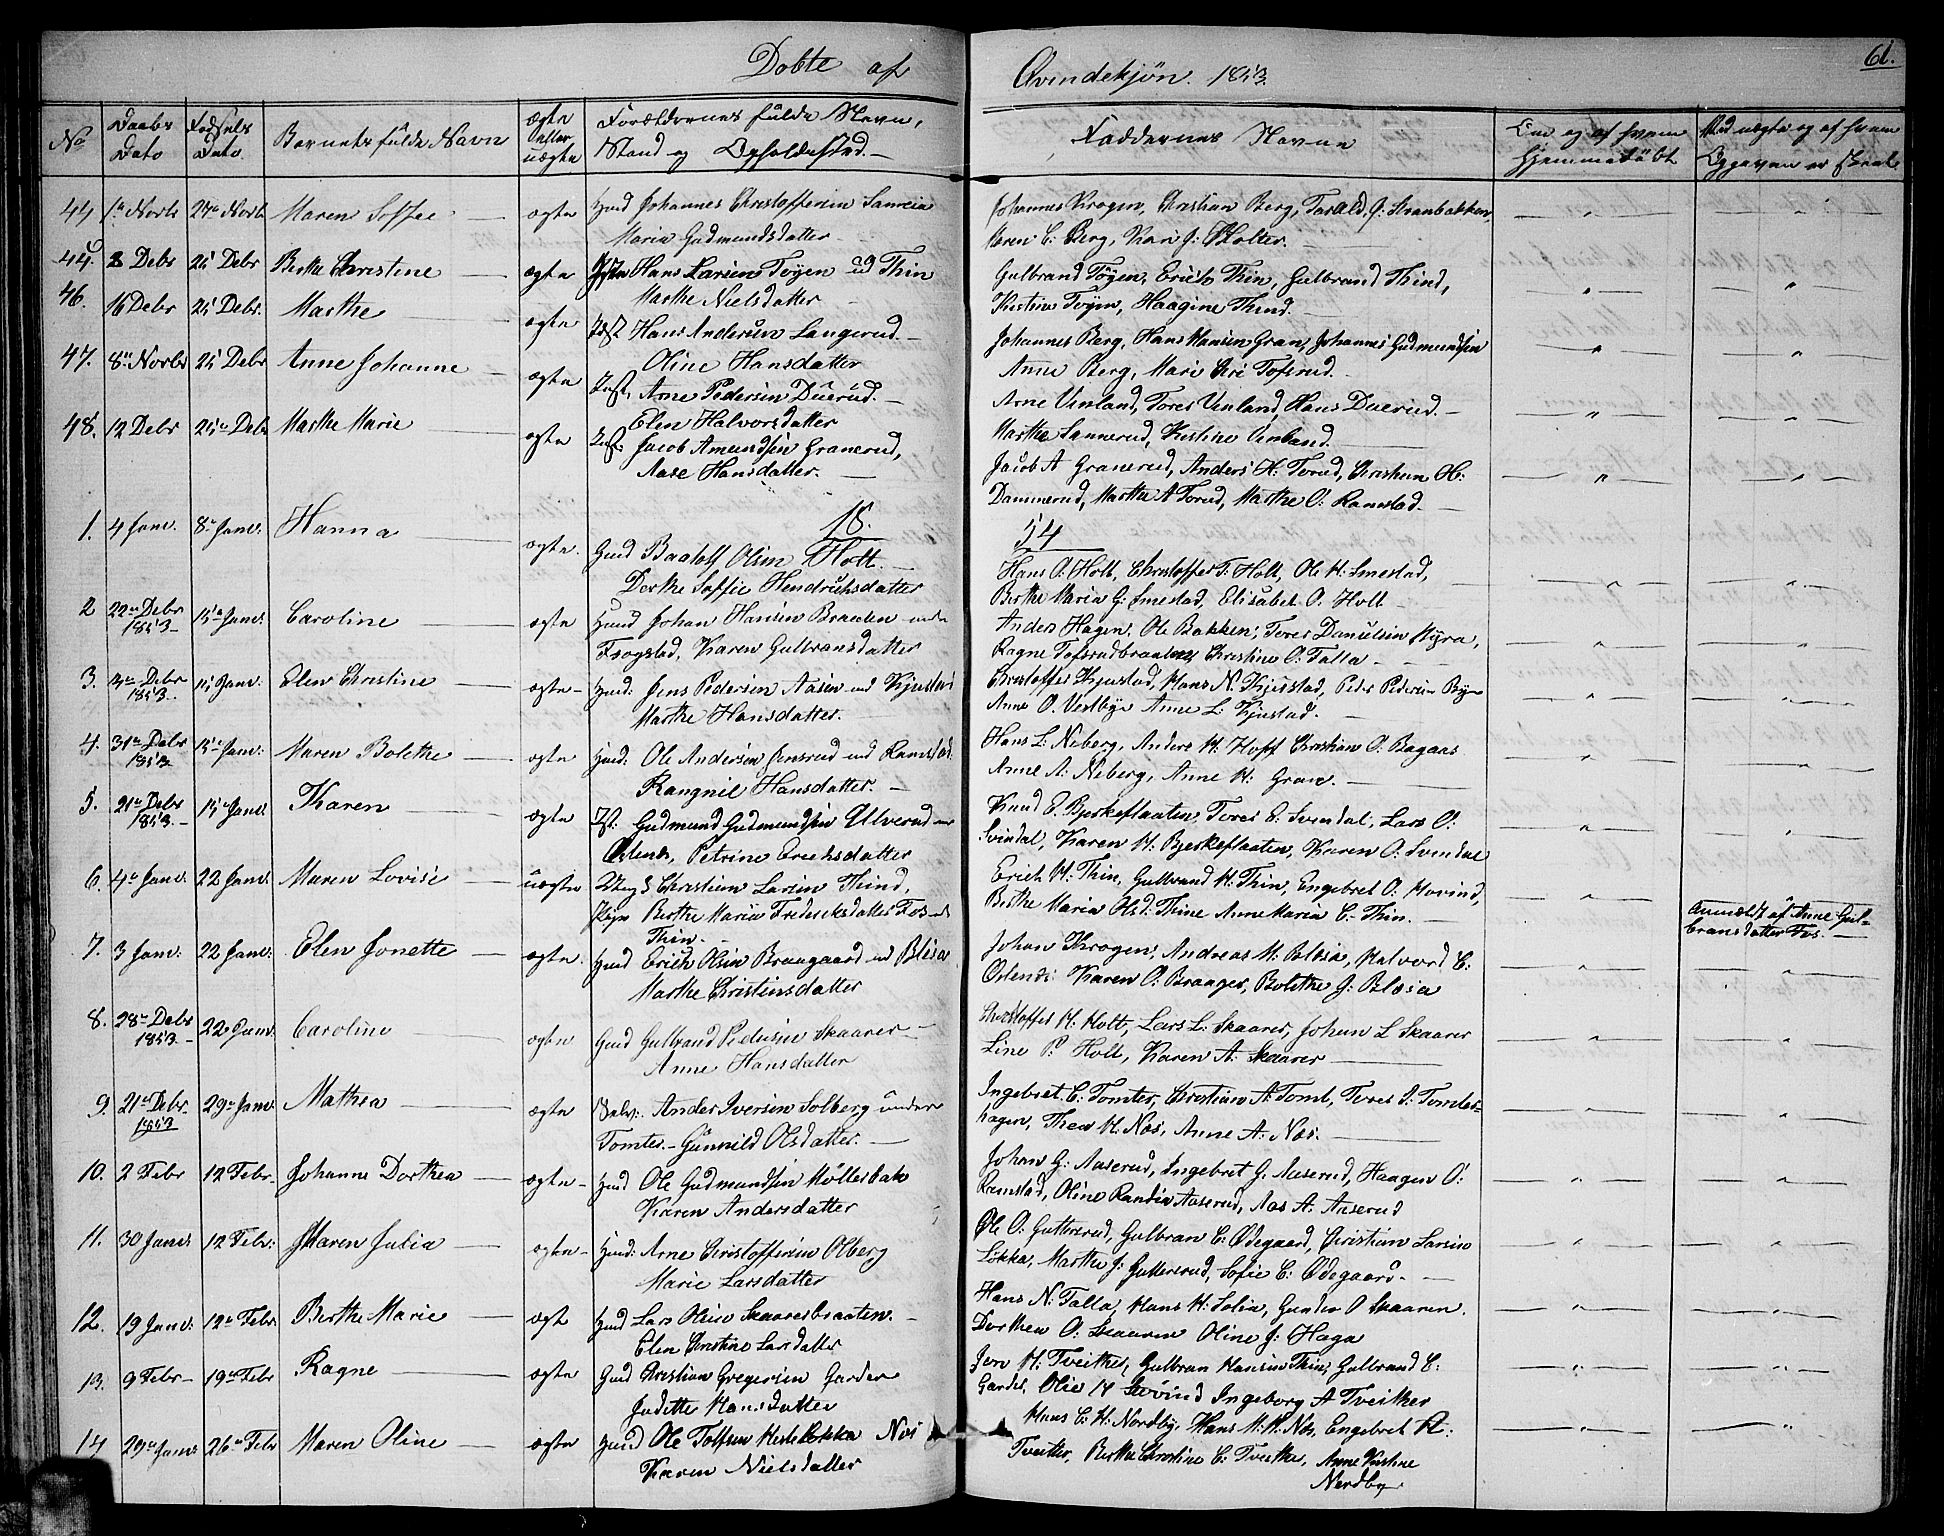 Døbte af Qvindekjøn. 1853
61.
No
Daabs Dato
Fødsels Dato
Barnets fulde Navn
ægte eller uægte
Forældrenes fulde Navn, Stand og Opholdssted.
Faddernes Navne
Om og af hvem hjemmedøbt
44 1ste Novbr 24de Novb Maren Soffie ægte Huusd Johannes Christoffersen
Maria Gudmundsdatter
Johannes Krogen, Christian Berg,
Maren C: Berg, Kari J: Holter.
45. 2 Debr 25 Debr Berthe Christine ægte Hans Larsen Togen ved Thin
Marthe Nielsdatter
Gulbrand Togen, Erich Thin, Gulbrand Thind,
Kirstine Togen, Haagine Thind.
46. 16 Debr 25 Debr. Marthe ægte Inst Hans Andersen Langerud.
Oline Hansdatter
Johannes Berg, Hans Hansen Gran, Johannes Gudmundsen
Anne Berg, Mari Tofsrud.
47. 8de Novbr 25 Debr Anne Johanne ægte Inst. Arne Pedersen Duerud.
Elen Halvorsdatter
Arne Vinland, Tores Vinland, Hans Duerud.
Marthe Sannerud, Kirstine Vinland.
48. 12 Debr 25de Debr Marthe Marie ægte Inst: Jacob Amundsen Granerud,
Aase Hansdatter.
Jacob A Granerud, Anders H: Torud, Christian H:
Dammerud, Marthe A Torud, Marthe O: Ramstad.
18. 54
1. 4 Janv. 8de Janv: Hanna ægte. Huusd Baatolf Olsen Holt.
Dorthe Soffie Hendrichsdatter
Hans O: Holt, Christoffer T: Holt, Ole H: Smestad,
Berthe Maria G: Smestad, Elisabet O. Holt
2 22de Debr 1853 15de Janv: Caroline ægte Huusd Johan Hansen Braaten under
Frogstad, Karen Gulbransdatter
Anders Hagen, Ole Bakken, Tores Danielsen Myra,
Ragne Tofsrudbraaten, Christine O: Falla
3. Debr 1853. 15 Janv: Elen Christine ægte Huusd: Jens Pedersen Aasen ved Kjustad
Marthe Hansdatter.
Christoffer Kjustad, Hans N. Kjustad, Peder Pedersen
Anne O. Vestbye Anne L: Kjustad.
4. 31te Debr 1853 15de Janv: Maren Bolethe ægte Huusd: Ole Andersen Jensrud ved Ramstad.
Rangnil Hansdatter.
Hans L: Neberg, Anders H: Hoff Christian O: Bagaas
Anne A: Neberg, Anne H: Gran.
5. 21de Debr 1853. 15 Janv: Karen ægte Ist: Gudmund Gudmundsen Ulverud under
Oslend, Petrine Erichsdatter
Knud E. Bjerkeflaaten, Tores E. Svendal, Lars O:
Svindal, Karen H: Bjerkeflaaten, Karen O: Svendal
6. 4de Janv. 22 Janv. Maren Lovise uægte Ungk Christian Larsen Thind,
Pige Berthe Maria Frederiksdatter Fos ved
Thin.
Erich H: Thin, Gulbrand H: Thin, Engebret O: Hovind,
Berthe Maria Olsd: Thine Anne Maria C. Thin.
Anmeldt af Anne Gul-
bransdatter Fos.
7. 3 Janv: 22 Janv: Elen Jonette ægte. Huusd Erich Olsen Braagaard ved Blesa
Marthe Christinsdatter
Johan Krogen, Andreas M: Blesa, Halvord C:
Oslend: Karen O: Braager, Bolethe J: Blæsa
8. 28de Debr 1853. 22 Janv. Caroline ægte Huusd Gulbrand Pedersen Skaarer
Anne Hansdatter
Christoffer H: Holt, Lars L: Skaarer, Johan L Skaarer
Line P. Holt, Karen A: Skaarer
9. 21de Debr 1853 29de Janv. Mathea ægte Selv: Ander Iversen Solberg under
Tomter. Gunnild Olsdatter.
Ingebret C. Tomter, Christian A: Tomt, Tores I: Tomter-
hagen, Thea H: Nos, Anne A: Nos.
10. 2 Febr 12 Febr. Johanne Dorthea ægte Huusd Ole Gudmundsen Møllerbak
Karen Andersdatter
Johan G: Aaserud, Ingebret G. Aaserud, Haagen O:
Ramstad, Oline Randia Aaserud, Aas A. Aaserud
11. 30 Janv: 12 Febr: Maren Julia ægte Huusd: Arne Christoffersen Olberg
Marie Larsdatter
Ole O: Guttersrud, Gulbran C: Ødegaard, Christian Larsen
Løkka, Marthe J: Guttersrud, Sofie C: Ødegaard.
12. 19 Janv: 12te Febr. Berthe Marie ægte Huusd Lars Olsen Skaarerbraaten.
Elen Christine Larsdatter
Hans N: Falla, Hans H: Solia, Gunder O Skaaren.
Dorthea O: Skaaren Oline J: Haga
13. 9 Febr 19de Febr Ragne ægte Huusd Christian Gregersen Garder
Judithe Hansdatter
Jon H: Tveither, Gulbran Hansen Thin, Gulbrand C:
Garder, Olie H Hovind Ingeborg A Tveither
14 29de Janv 26de Febr Maren Oline ægte Huusd Ole Tolfsen Løkka Nos
Karen Nielsdatter
Hans C: H: Nordby, Hans M: H: Nos, Engebret H:
Tveither, Berthe Christine C: Tveither, Anne Kirstine
Nordby